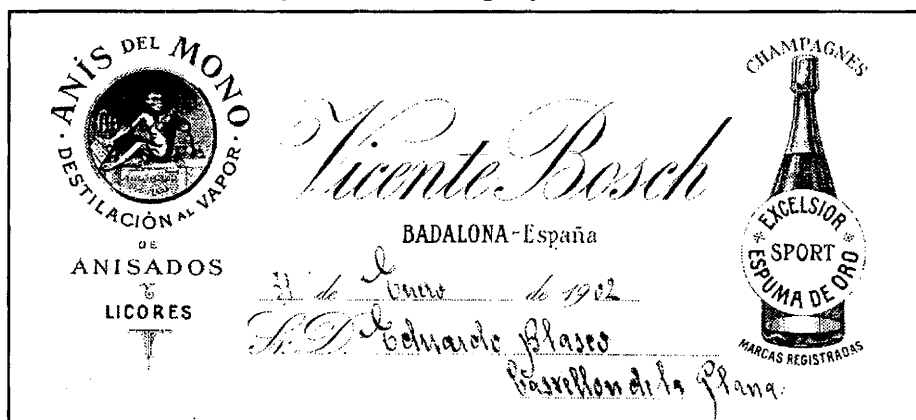 ANÍS DEL MONO
· DESTILACIÓN AL VAPOR ·
DE
ANISADOS
Y
LICORES
Vicente Bosch
BADALONA-España
31 de Enero de 1902
Sr. D. Eduardo Blasco
Castellon de la Plana
CHAMPAGNES
EXCELSIOR
SPORT
ESPUMA DE ORO
MARCAS REGISTRADAS